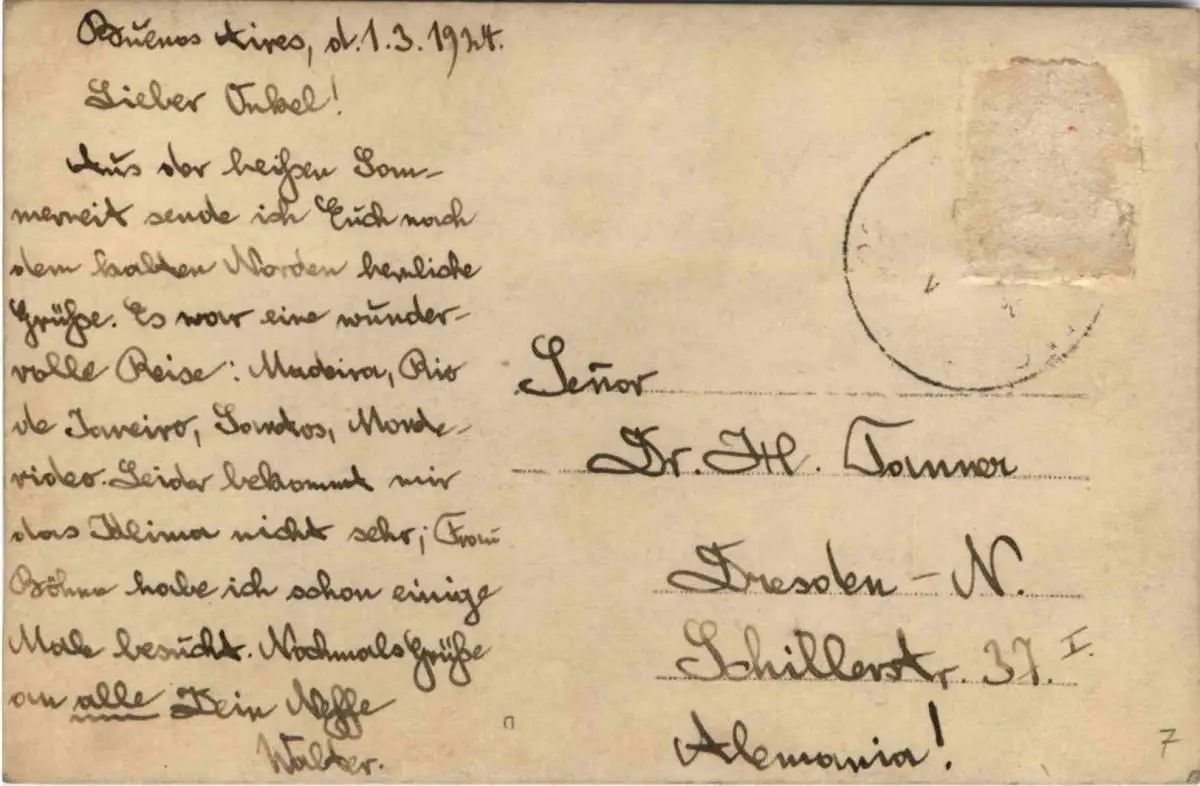 Buenos Aires, d. 1.3.1924.
Lieber Onkel!
Aus der heißen Som-
merzeit sende ich Euch nach
dem kalten Norden herzliche
Grüße. Es war eine wunder-
volle Reise: Madeira, Rio
de Janeiro, Santos, Monte-
video. Leider bekommt mir
das Klima nicht sehr; Frau
Böhme habe ich schon einige
Male besucht. Nochmals Grüße
an alle Dein Neffe
Walter.
Señor
Dr. H. Tanner
Dresden-N.
Schillerstr. 37. I.
Alemania!
7